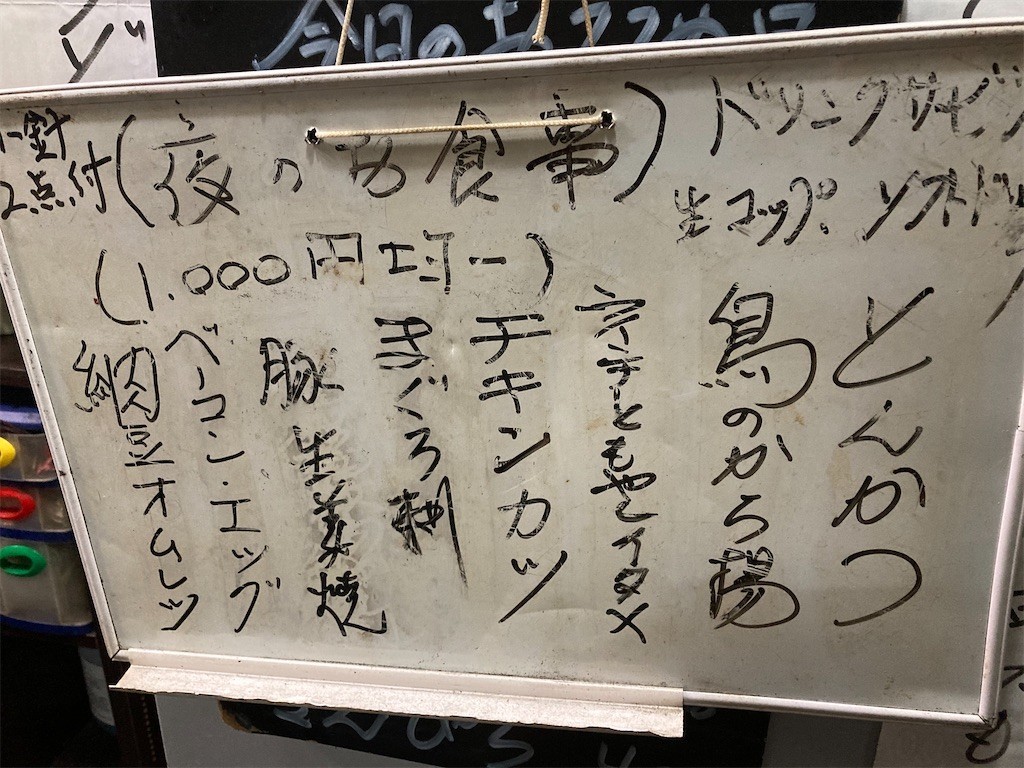 今日のおすすめ
小鉢
2点付
(夜のお食事)
ドリンクサービ
生コップ. ソフトドリ
(1.000円均一)
とんかつ
鳥のから揚
ウインナーともやしイタメ
チキンカツ
まぐろ刺
豚生姜焼
ベーコン・エッグ
納豆オムレツ